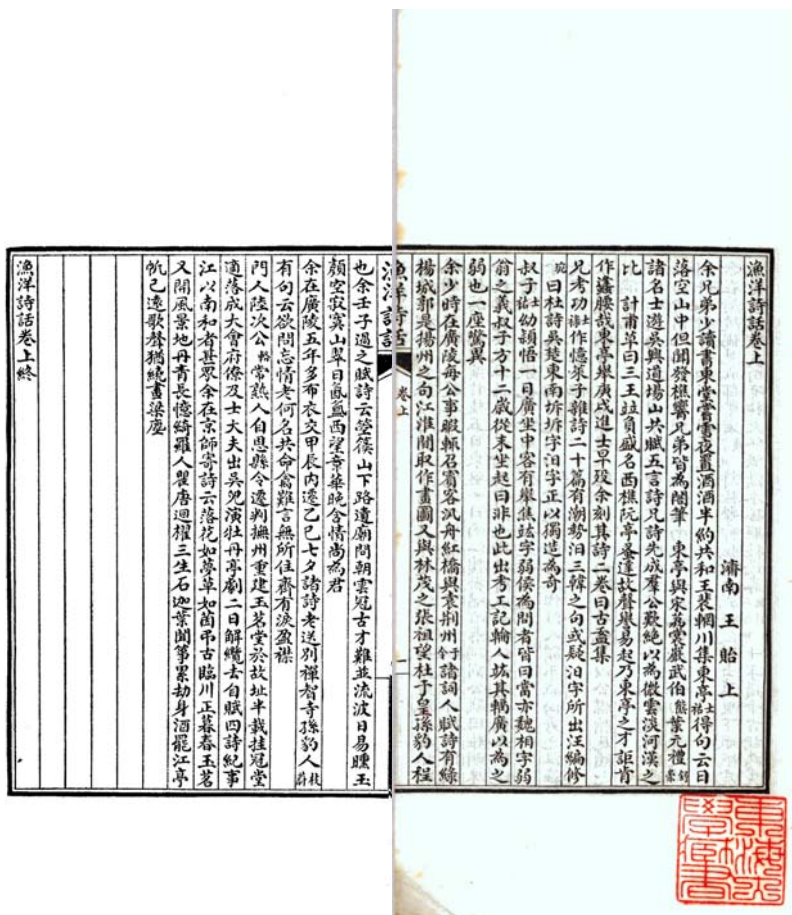 漁洋詩話卷上
濟南王貽上
余兄弟少讀書東堂嘗雪夜置酒酒半約共和王裴輞川集東亭士祜得句云日
落空山中但聞發樵響兄弟皆為閣筆 東亭與宋荔裳嚴武伯熊葉元禮舒崇
諸名士遊吳興道場山共賦五言詩兄詩先成羣公歎絕以為微雲淡河漢之
比 計甫草曰三王竝負盛名西樵阮亭蚤達故聲譽易起乃東亭之才詎肯
作蜂腰哉東亭舉庚戌進士早歿余刻其詩二卷曰古盋集
兄考功士祿作憶萊子雜詩二十篇有潮勢汨三韓之句或疑汨字所出汪編修
琬曰杜詩吳楚東南坼坼字汨字正以獨造為奇
叔子士祜幼穎悟一日廣坐中客有舉焦竑字弱侯為問者皆曰當亦魏相字弱
翁之義叔子方十二歲從末坐起曰非也此出考工記輪人竑其輻廣以為之
弱也一座驚異
余少時在廣陵每公事暇輒召賓客汎舟紅橋與袁荊州于令諸詞人賦詩有綠
楊城郭是揚州之句江淮間取作畫圖又與林茂之張祖望杜于皇孫豹人程
漁洋詩話 卷上 一
也余壬子過之賦詩云箜篌山下路遺廟問朝雲冠古才難並流波日易曛玉
顏空寂寞山翠日氤氳西望章華晚含情尚為君
余在廣陵五年多布衣交甲辰內遷乙巳七夕諸詩老送別禪智寺孫豹人枝蔚
有句云欲問忘情老何名共命禽難言無所住齊有淚盈襟
門人陸次公輅常熟人自恩縣令遷判撫州重建玉茗堂於故址半載挂冠堂
適落成大會府僚及士大夫出吳兒演牡丹亭劇二日解纜去自賦四詩紀事
江以南和者甚眾余在京師寄詩云落花如夢草如茵弔古臨川正暮春玉茗
又開風景地丹青長憶綺羅人瞿唐迴櫂三生石迦葉聞箏累劫身酒罷江亭
帆已遠歌聲猶繞畫梁塵
漁洋詩話卷上終